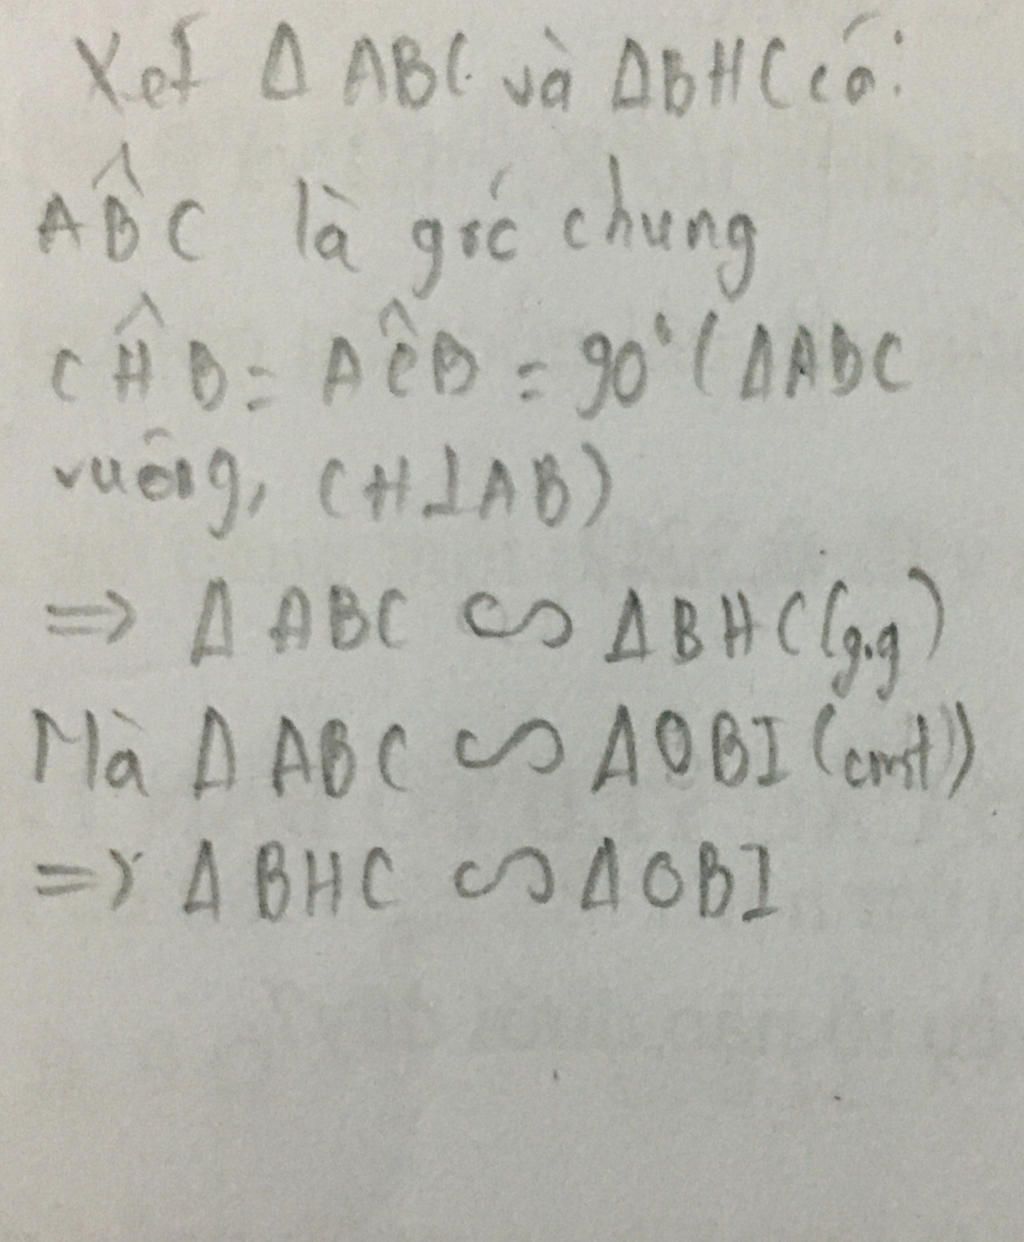 Xét Δ ABC và ΔBHC có:
AB̂C là góc chung
CĤB = AĈB = 90° (ΔABC
vuông, CH⊥AB)
=> Δ ABC ∽ ΔBHC (g.g)
Mà Δ ABC ∽ ΔOBI (cmt)
=> Δ BHC ∽ ΔOBI